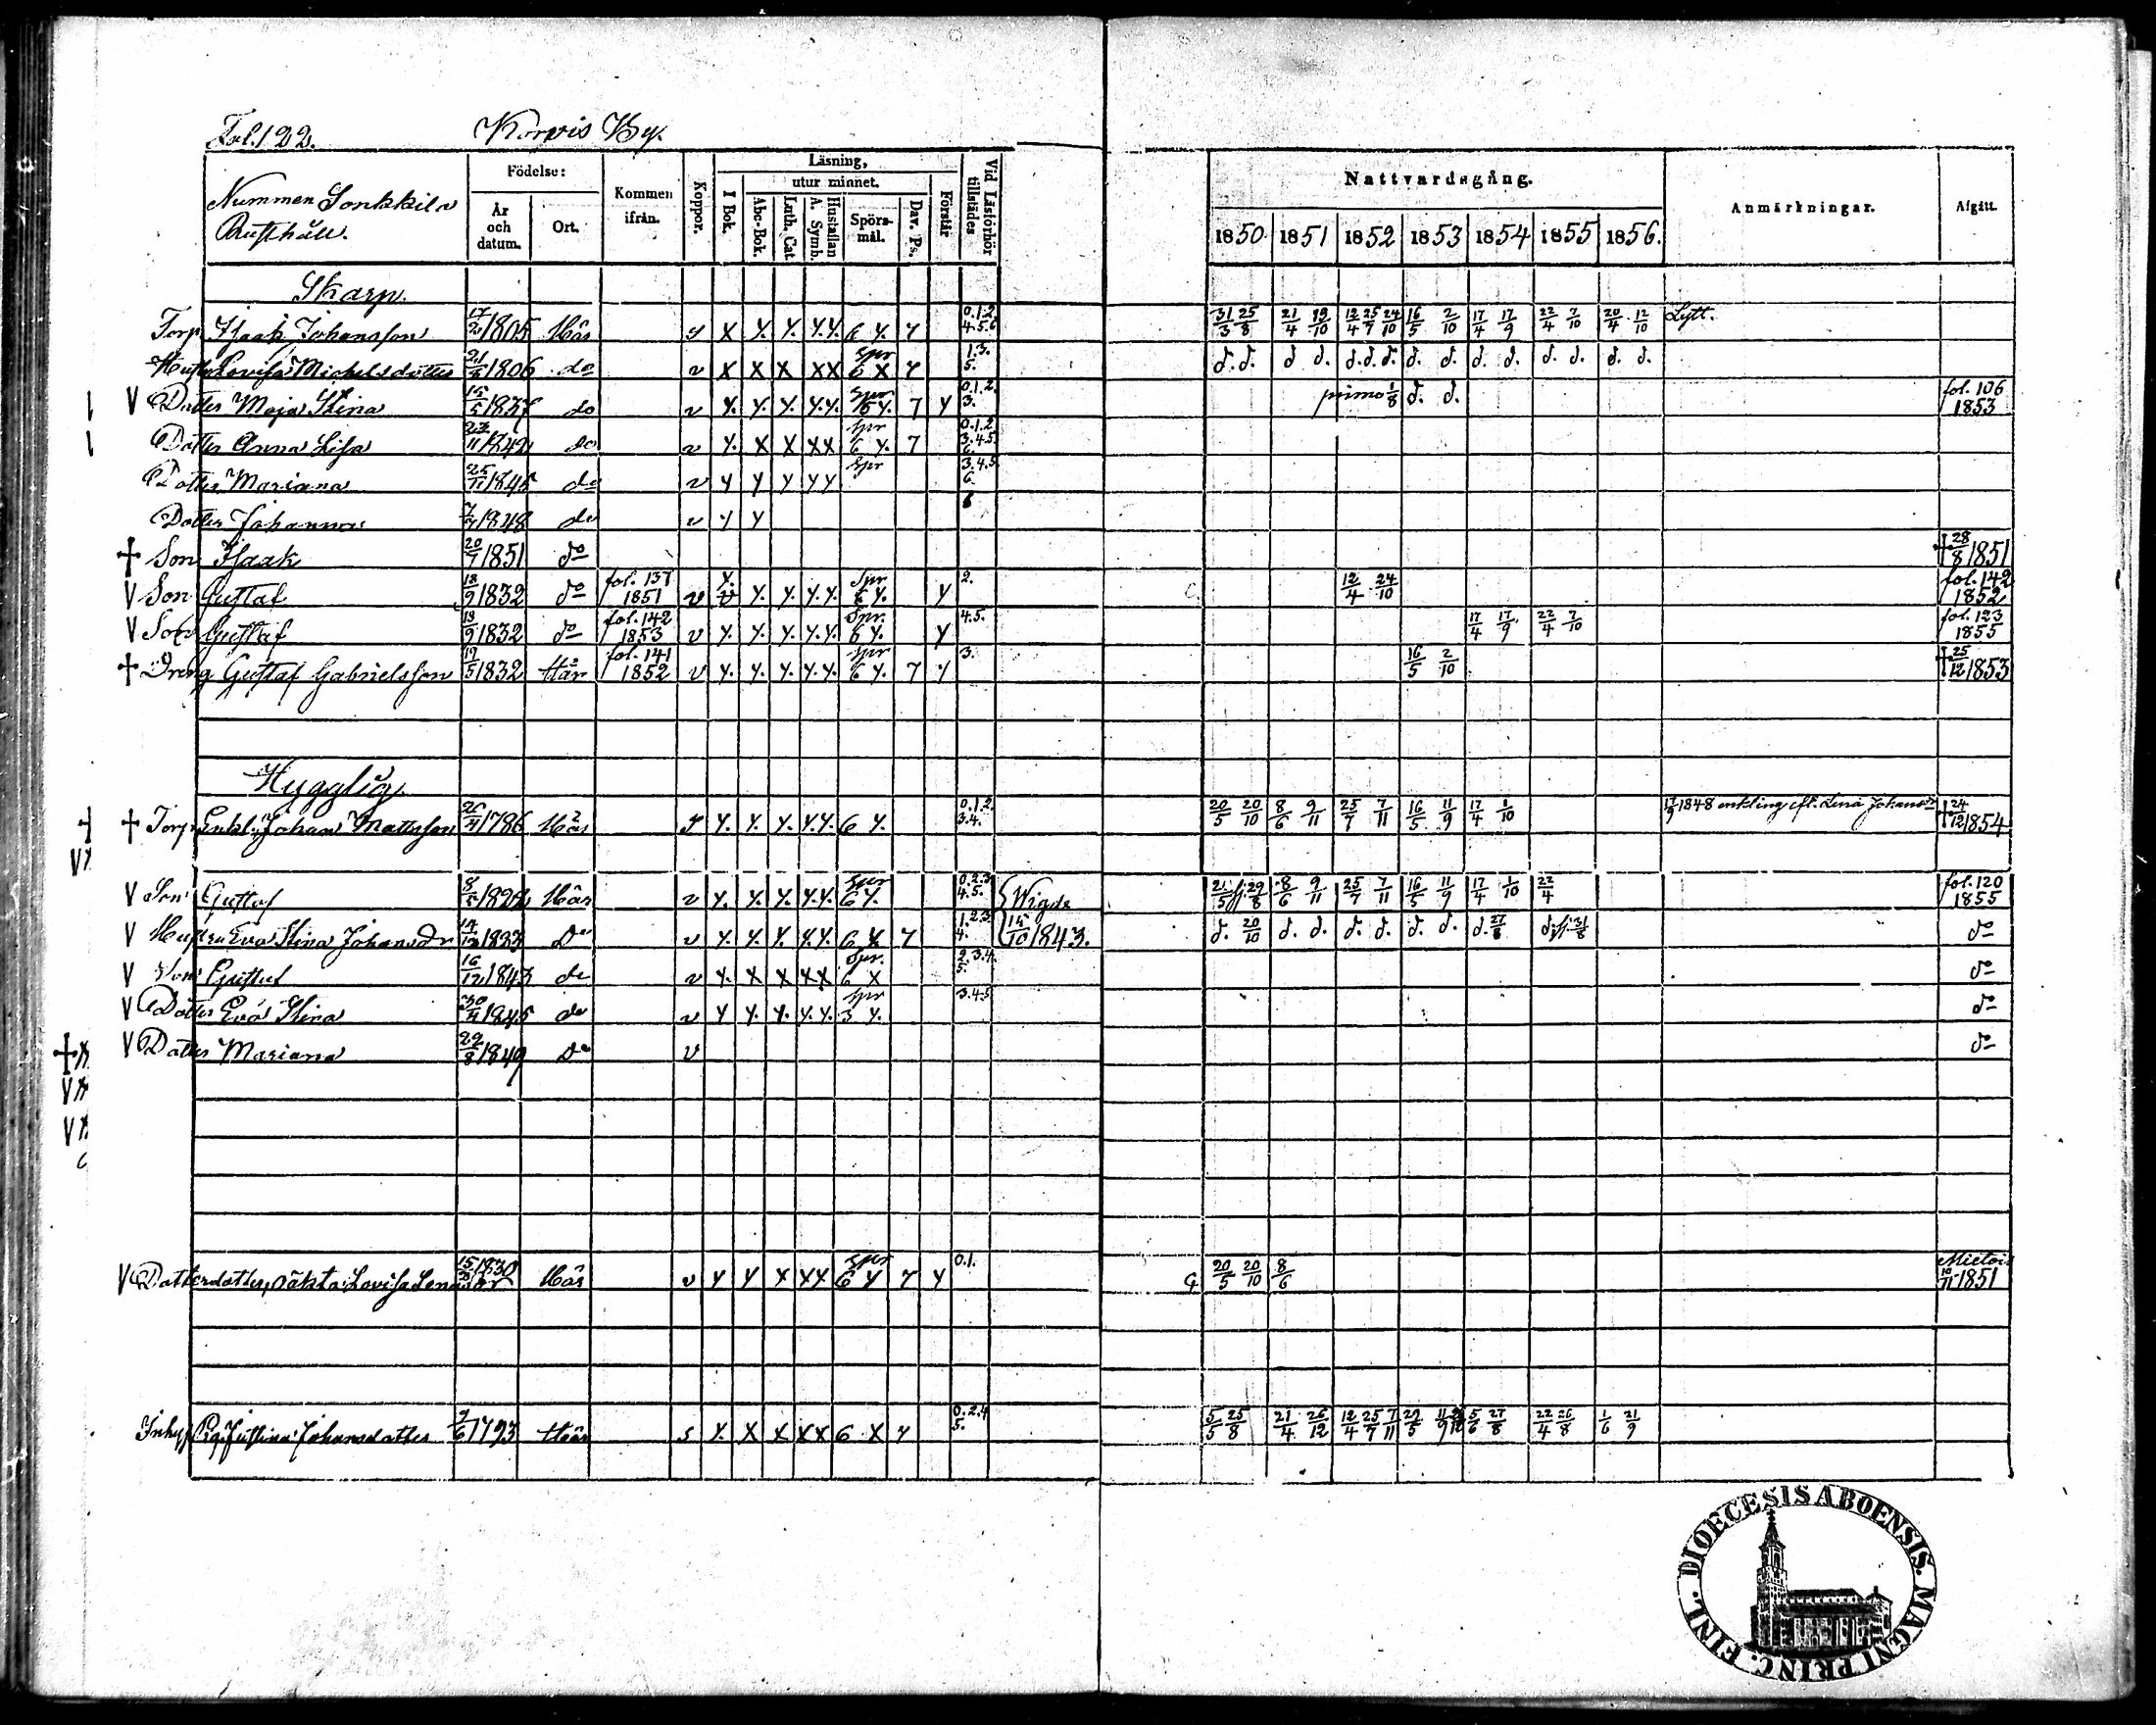 Fol. 122. Korvis By.
Nummen Sonkkila
Rusthåll.
Födelse:
År och datum.
Ort.
Kommen ifrån.
Koppor.
Läsning,
I Bok.
utur minnet.
Abc-Bok.
Luth. Cat
Hustaflan A. Symb.
Spörs-mål.
Dav. Ps.
Förstår
Vid Läsförhör tillstädes
Nattvardsgång.
1850 1851 1852 1853 1854 1855 1856.
Anmärkningar.
Afgått.
Skarp.
Torp. Isaak Johansson 1805 Här 6 y. 7 0.1.2. 4.5.6 31/3 25/8 21/4 19/10 12/4 25/7 24/10 16/5 2/10 17/4 17/9 22/4 7/10 20/4 12/10 Lytt.
Hustru Lovisa Michelsdotter 1806 do v X X X XX Spr 6 X 7 1.3. 5. d. d. d d. d. d. d. d. d. d. d. d. d. d. d.
V Dotter Maja Stina 15/5 1837 do v y. y. y. y.y. Spr 7 y 0.1.2. 3. primo 1/8 d. d. fol. 106 1853
Dotter Anna Lisa do v y. X X XX Spr 6 y. 7 0.1.2. 3.4.5. 6.
Dotter Mariana 25/11 1845 do v y y y y y Spr 3.4.5. 6.
Dotter Johanna 1848 do v y y 6
† Son Isaak 20/7 1851 do † 28/8 1851
V Son Gustaf 18/9 1832 do fol. 137 1851 v y. y. y. y.y. Spr 6 y. y 2. 12/4 24/10 fol. 142 1852
V Son Gustaf 18/9 1832 do fol. 142 1853 v y. y. y. y.y. Spr. 6 y. y 4.5. 17/4 17/9 22/4 7/10 fol. 123 1855
† Dreng Gustaf Gabrielsson 19/5 1832 Här fol. 141 1852 v y. y. y. y.y. Spr 6 y. 7 y 3. 16/5 2/10 † 25/12 1853
Hygglig
† Torp. Enkl. Johan Mattsson 1786 Här y. y. y. y.y. 6 y. 0.1.2. 3.4. 20/5 20/10 8/6 9/11 25/7 7/11 16/5 11/9 17/4 1/10 17/9 1848 enkling eft. Lena Johansdr † 24/12 1854
V Son Gustaf Här v y. y. y. y.y. Spr 6 y. 0.2.3. 4.5. Wigde 21/5 29/8 8/6 9/11 25/7 7/11 16/5 11/9 17/4 1/10 22/4 fol. 120 1855
V Hustru Eva Stina Johansdr 1823 Do v y. y. y. y.y. 6 X 7 1.2.3. 4. 15/10 1843. d. 20/10 d. d. d. d. d. d. d. 27/8 do
V Son Gustaf 16/12 1843 do v y. X X XX Spr. 6 X 2.3.4. 5. do
V Dotter Eva Stina 1845 do v y y. y. y.y. Spr 3 y. 3.4.5 do
V Dotter Mariana 22/8 1849 Do v do
V Dotterdotter, oäkta Lovisa Lena 1830 Här v y y X XX Spr 6 y 7 y 0.1. 20/5 20/10 8/6 Mietois 10/11 1851
Inhys Pig. Justina Johansdotter 1793 Här s y. X X XX 6 X 7 0.2.4. 5. 5/5 25/8 21/4 26/12 12/4 25/7 7/11 5/6 27/8 22/4 26/8 1/6 21/9
DIOECESIS ABOENSIS. MAGNI PRINC. FINL.